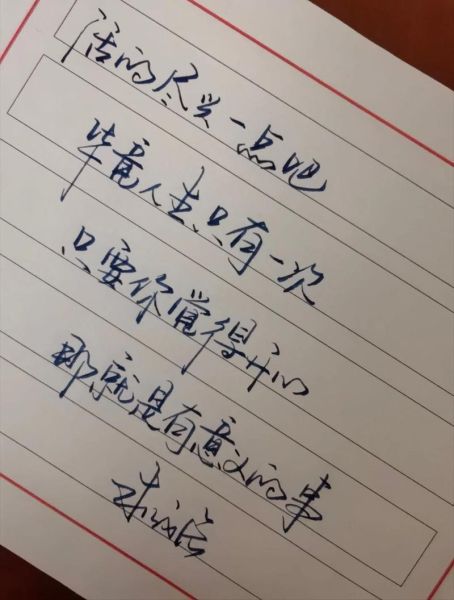 活的尽兴一点吧
毕竟人生只有一次
只要你觉得开心
那就是有意义的事